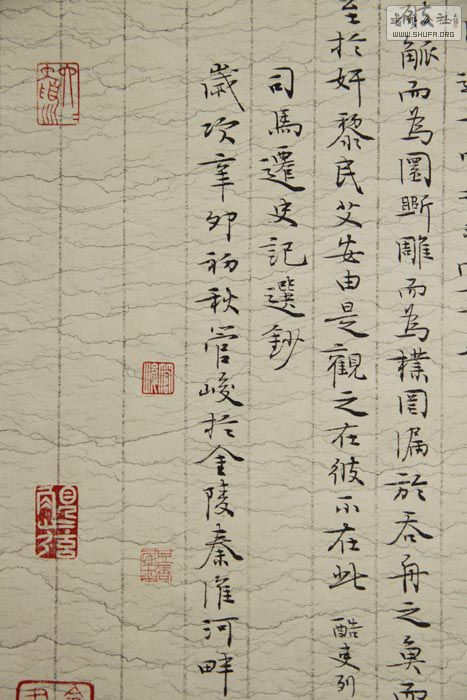 觚而為圜斲雕而為樸罔漏於吞舟之魚而
至於奸黎民艾安由是觀之在彼不在此 酷吏列
司馬遷史記選鈔
歲次辛卯初秋管峻於金陵秦淮河畔
WWW.SHUFA.ORG